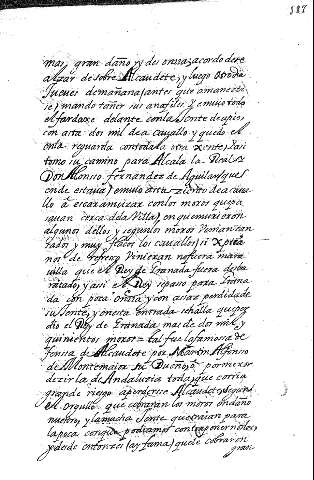 187
mas, gran daño, y des onrra, acordo de se
alzar de sobre Alcaudete, y luego otro dia
Jueves de mañana, antes que amanecie
se, mando tañer sus anafiles y enuio todo
el fardaxe delante con la Gente de a pie,
con asta dos mil de a cauallo y quedo el
en la reguarda con toda la otra Xente, y asi
tomo su camino para Alcala la Real, y
Don Alonso fernandez de Aguilar, que
onde estaua, enuio asta zientos de a caua
llo a escaramuzar con los moros que pa
sauan cerca de la Villa, en que murieron
algunos dellos, y segun los moros venian can
sados y muy flacos los cauallos, si Xptia
nos de refresco vinieran no fuera mara
uilla que el Rey de Granada fuera desba
ratado, y asi el Rey se paso para Grana
da con poca onrra y con asaz perdida de
su Gente, y en esta entrada se halla que per
dio el Rey de Granada mas de dos mil y
quinientos moros: tal fue la famosa de
fensa de Alcaudete por Martin Alfonso
de Montemaior
dezir la de Andaluzia toda, que corria
grande riesgo a perderse Alcaudete, segun
el orgullo que cobraran los moros en daño
nuestro, y la mucha Gente que traian para
la poca con que podiamos contraponernosles,
y desde entonzes (ay fama) que le cobraron
gran